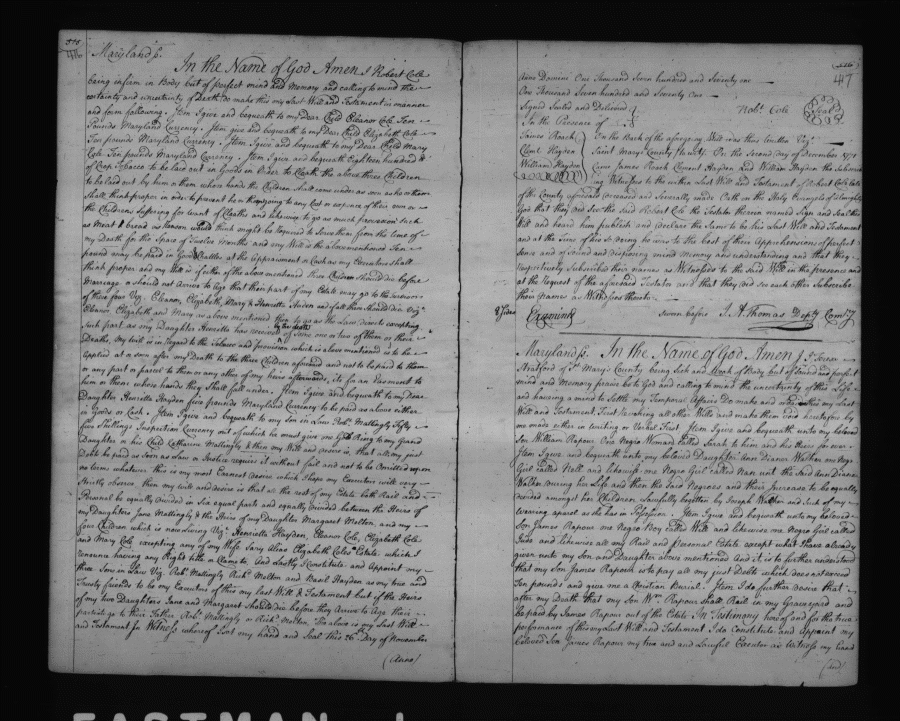 Maryland ss.
In the Name of God Amen I Robert Cole
being infirm in Body but of perfect mind and Memory and calling to mind the
certainty and uncertainty of Death to make this my Last Will and Testament in manner
and form following. Item I give and bequeath to my Dear Child Eleanor Cole Ten
Pounds Maryland Currency. Item give and bequeath to my Dear Child Elizabeth Cole
Ten pounds Maryland Currency. Item I give and bequeath to my Dear Child Mary
Cole Ten pounds Maryland Currency. Item I give and bequeath Eighteen hundred
of Crop Tobacco to be laid out in Goods in Order to Cloath the above three Children
to be laid out by him or them whose hands the Children shall come under as soon as he or them
shall think proper in order to prevent he or them going to any Cost or expence of their own or
the Childrens suffering for want of Cloaths and likewise to go as much provision such
as Meat & bread as would think might be required to serve them from the time of
my Death for the Space of Twelve Months and my Will is the abovementioned Ten
pound may be paid in Good Chattles at the appraisment or Cash as my Executors shall
think proper and my Will is if either of the above mentioned three Children should die before
Marriage or should not arrive to Age that their part of my Estate may go to the survivors
of these four Viz. Eleanor, Elizabeth, Mary & Henrietta Haden and if all them should die Viz.
Eleanor Elizabeth and Mary as above mentioned then to go as the Law directs excepting
such part as my Daughter Henrietta has received by the death of some one or two of them or their
Deaths, My will is in Regard to the Tobacco and provision which is above mentioned is to be
applied as soon after my Death to the three Children aforesaid and not to be paid to them
or any part or parcel to them or any other of my heirs afterwards, it for an Easment to
him or them whose hands they shall fall under. Item I give and bequeath to my Dear
Daughter Henrietta Hayden five pounds Maryland Currency to be paid as above either
in goods or Cash. Item I give and bequeath to my Son in Law Robt. Mattingly Fifty
five Shillings Inspection Currency out of which he must give one Gold Ring to my Grand
Daughter or his Child Catharine Mattingly & then my Will and desire is, that all my just
Debts be paid as soon as Law or Justice requires it without fail and not to be Omitted upon
no terms whatever this is my most Earnest desire which I hope my Executors will very
Strictly observe then my will and desire is that all the rest of my Estate both Real and
Personal be equally divided in Six equal parts and equally divided between the Heirs of
my Daughters Jane Mattingly & the Heirs of my Daughter Margaret Melton, and my
four Children which is now living Viz. Henrietta Hayden, Eleanor Cole, Elizabeth Cole
and Mary Cole excepting any of my Wife Sary Alias Elizabeth Coles Estate which I
renounce having any Right title or Claim to. And Lastly I Constitute and appoint my
three Sons in Law Viz. Robt. Mattingly Richd. Melton and Basil Hayden as my true and
Trusty friends to be my Executors of this my last Will & Testament but if the Heirs
of my two Daughters Jane and Margaret should die before they Arrive to Age their
parts to go to their Father Robt. Mattingly or Richd. Melton. The above is my Last Will
and Testament In Witness whereof I set my hand and Seal this 26 Day of November
(Anno)
47
Anno Domini One Thousand Seven hundred and Seventy one
One Thousand Seven hundred and Seventy One
Signed Sealed and Delivered
In the Presence of
Robt. Cole
Seal
James Roach
Clemt. Hayden
William Hayden
In the Back of the aforegoing Will was thus written Viz.
Saint Marys County to wit. On the Second day of December 1771
Came James Roach Clement Hayden and William Hayden the Subscrib-
ing Witnesses to the within Last Will and Testament of Robert Cole late
of the County aforesaid deceased and severally made Oath on the Holy Evangels of Almighty
God that they did see the said Robert Cole the Testator therein named Sign and Seal this
Will and heard him publish and declare the Same to be his Last Will and Testament
and at the time of his so doing he was to the best of their Apprehensions of perfect
sence and of sound and disposing mind Memory and understanding and that they
respectively Subscribed their names as Witnesses to the said Will in the presence and
at the request of the aforesaid Testator and that they did see each other Subscribe
their names as Witnesses thereto.
8 Sides
Examined
Sworn before J. A. Thomas Depty. Comry.
Maryland ss. In the Name of God Amen I
Stratford of St. Mary's County being Sick and Weak of Body but of sound and perfect
mind and Memory praise be to God and calling to mind the uncertainty of this Life
and having a mind to Settle my Temporal Affairs Do make and this my Last
Will and Testament first revoking all other Wills and make them void heretofore by
me made either in writing or Verbal First Item I give and bequeath unto my beloved
Son William Rapour One Negro Woman called Sarah to him and his Heirs for ever
Item I give and bequeath unto my beloved Daughter Ann Diana Walker one Negro
Girl called Nell and likewise one Negro Girl called Nan unto the said Ann Diana
Walker during her Life and then the said Negroes and their Increase to be equally
devided amongst her Children Lawfully begotten by Joseph Walker and such of my
wearing aparel as she has in Possession. Item I give and bequeath unto my beloved
Son James Rapour one Negro Boy called Will and likewise one Negro Girl called
and likewise all my Real and Personal Estate except what I have already
given unto my Son and Daughter above mentioned And it is to be further understood
that my Son James Rapour is to pay all my just Debts which does not exceed
Ten pounds and give me a Christian Burial. Item I do further desire that
after my Death that my Son Wm. Rapour shall Rail in my Graveyard and
be paid by James Rapour out of the Estate In Testimony hereof and for the true
performance of this my Last Will and Testament I do constitute and appoint my
beloved Son James Rapour my true and Lawful Executor as Witness my hand
(and)